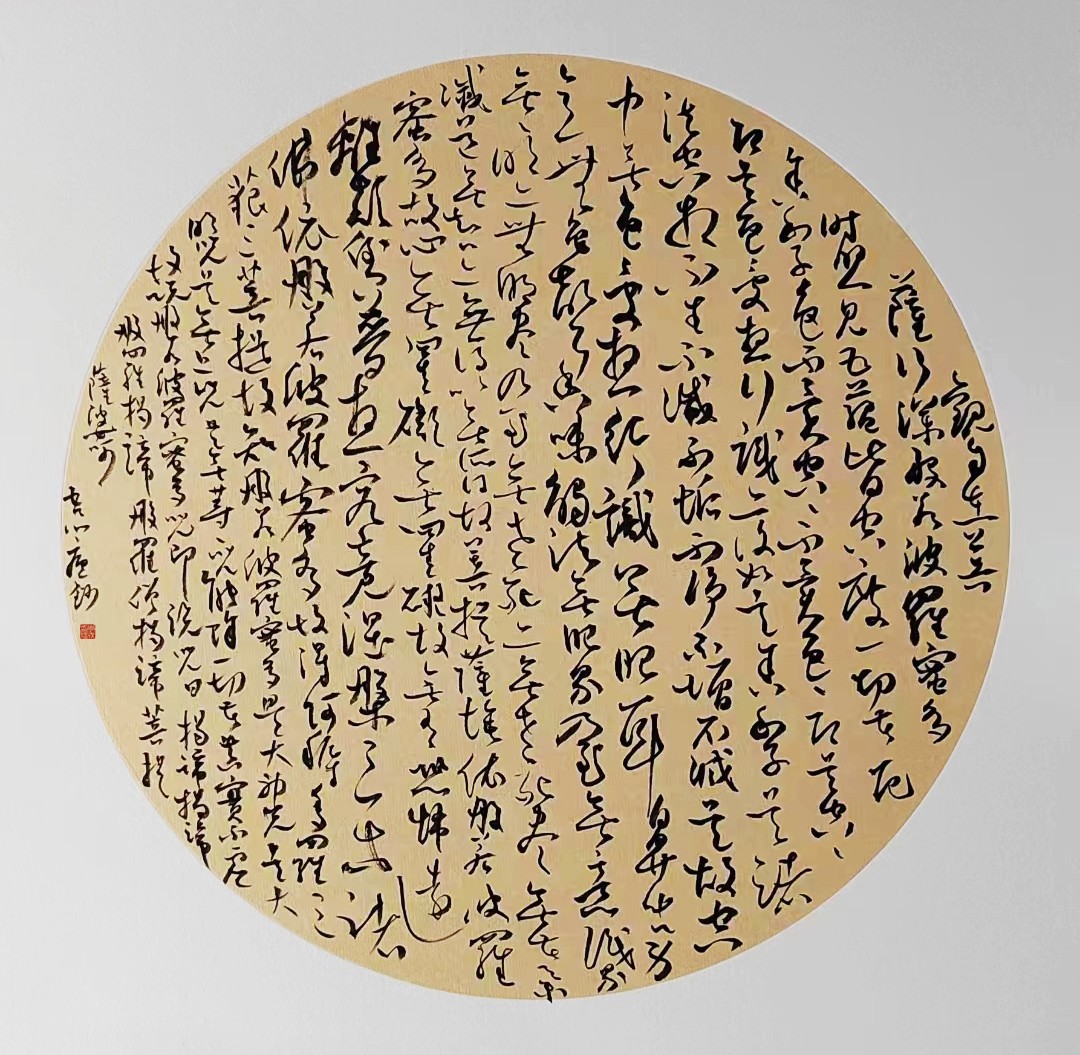 觀自在菩
薩行深般若波羅蜜多
时照見五蕴皆空度一切苦厄
舍利子色不異空空不異色色即是空空
即是色受想行識亦復如是舍利子是諸
法空相不生不滅不垢不净不增不减是故空
中無色受想行識無眼耳鼻舌身
意無色聲香味觸法無眼界乃至無意識界
無無明亦無無明盡乃至無老死亦無老死盡無苦集
滅道無智亦無得以無所得故菩提薩埵依般若波羅
蜜多故心無罣礙無罣礙故無有恐怖遠
離顛倒夢想究竟涅槃三世諸
佛依般若波羅蜜多故得阿耨多羅三
藐三菩提故知般若波羅蜜多是大神咒是大
明咒是無上咒是無等等咒能除一切苦真實不虛
故説般若波羅蜜多咒即説咒曰揭諦揭諦
般羅揭諦般羅僧揭諦菩提
薩婆訶